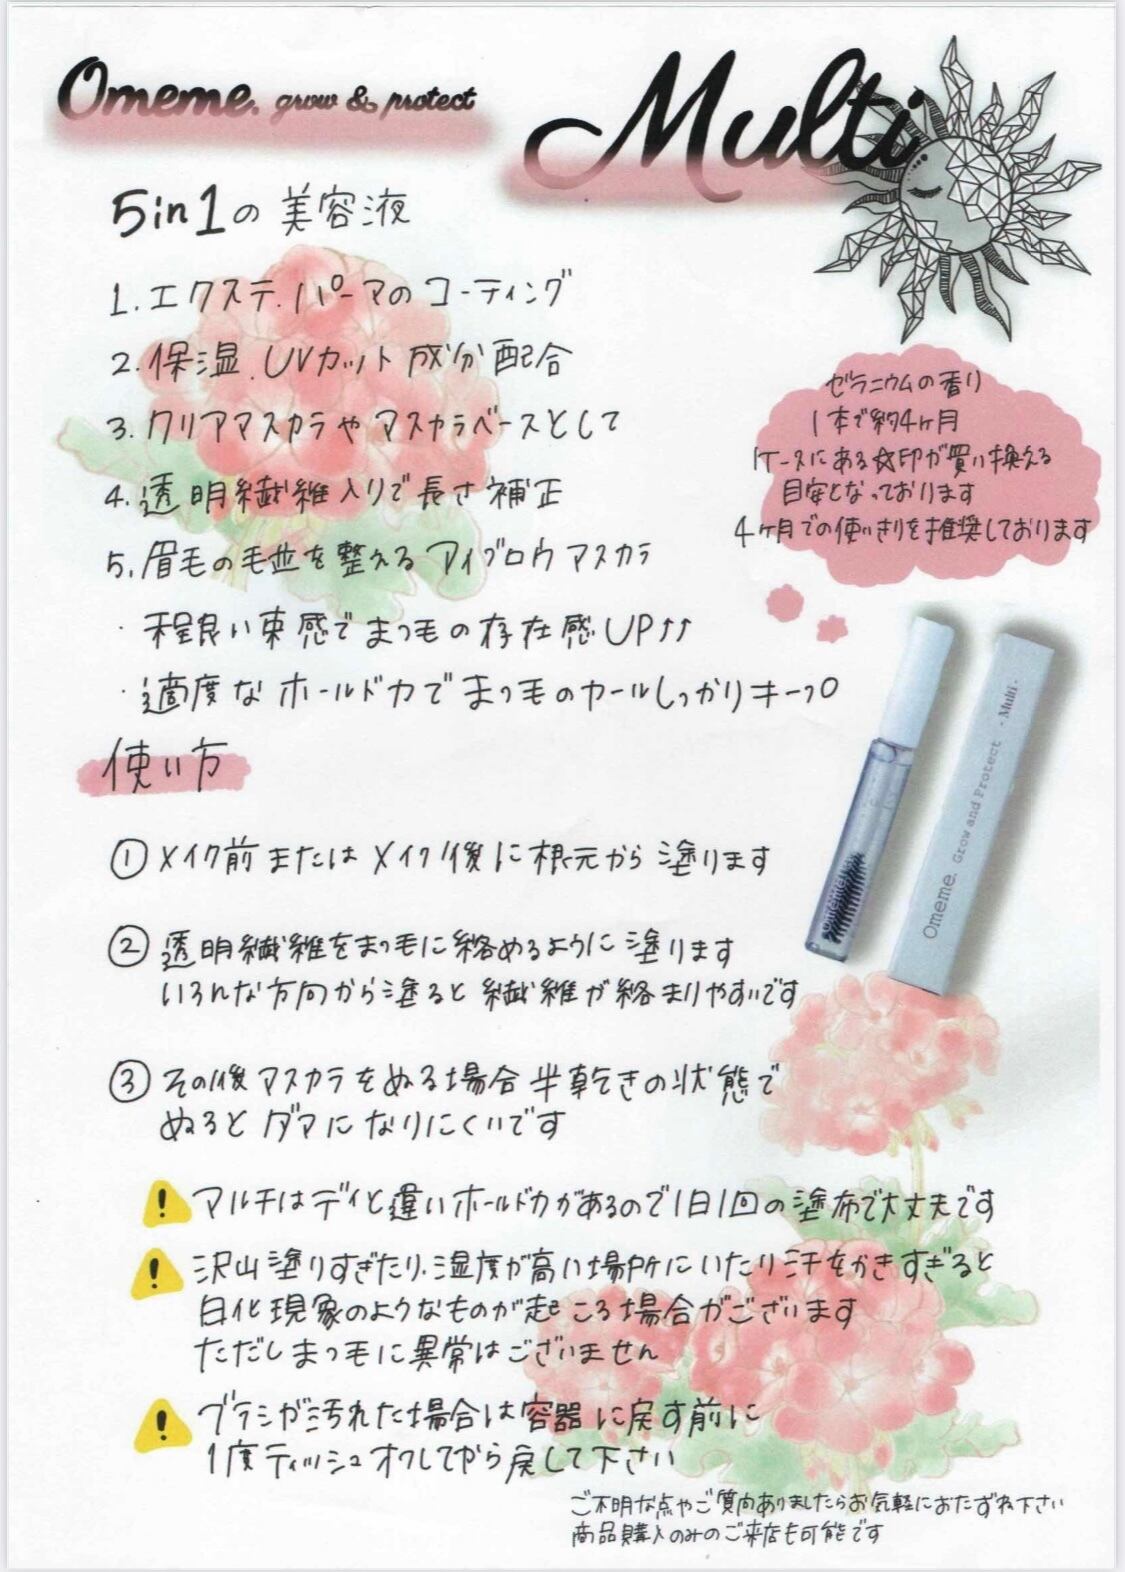 Omeme. grow & protect
Multi
5in1の美容液
1.エクステ.パーマのコーティング
2.保湿.UVカット成分配合
3.クリアマスカラやマスカラベースとして
4.透明繊維入りで長さ補正
5.眉毛の毛並を整えるアイブロウマスカラ
・程良い束感でまつ毛の存在感UP↑↑
・適度なホールド力でまつ毛のカールしっかりキープ
ゼラニウムの香り
1本で約4ヶ月
ケースにある☆印が買い換える
目安となっております
4ヶ月での使いきりを推奨しております
使い方
①メイク前またはメイク後に根元から塗ります
②透明繊維をまつ毛に絡めるように塗ります
いろんな方向から塗ると繊維が絡まりやすいです
③その後マスカラをぬる場合半乾きの状態で
ぬるとダマになりにくいです
Omeme. Grow and Protect - Multi -
! マルチはデイと違いホールド力があるので1日1回の塗布で大丈夫です
! 沢山塗りすぎたり.湿度が高い場所にいたり汗をかきすぎると
白化現象のようなものが起こる場合がございます
ただしまつ毛に異常はございません
! ブラシが汚れた場合は容器に戻す前に
1度ティッシュオフしてから戻して下さい
ご不明な点やご質問ありましたらお気軽におたずね下さい
商品購入のみのご来店も可能です